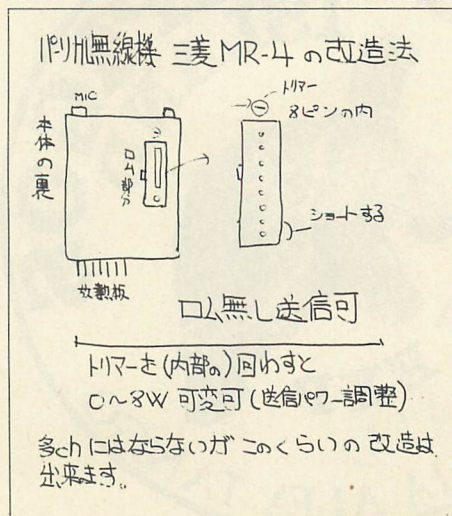 パーソナル無線機 三菱MR-4の改造法
MIC
本体の裏
ロム部分
放熱板
トリマー
8ピンの内
ショートする
ロム無し送信可
トリマーを(内部の)回わすと
0〜8W 可変可(送信パワー調整)
多chにはならないが このくらいの改造は
出来ます。